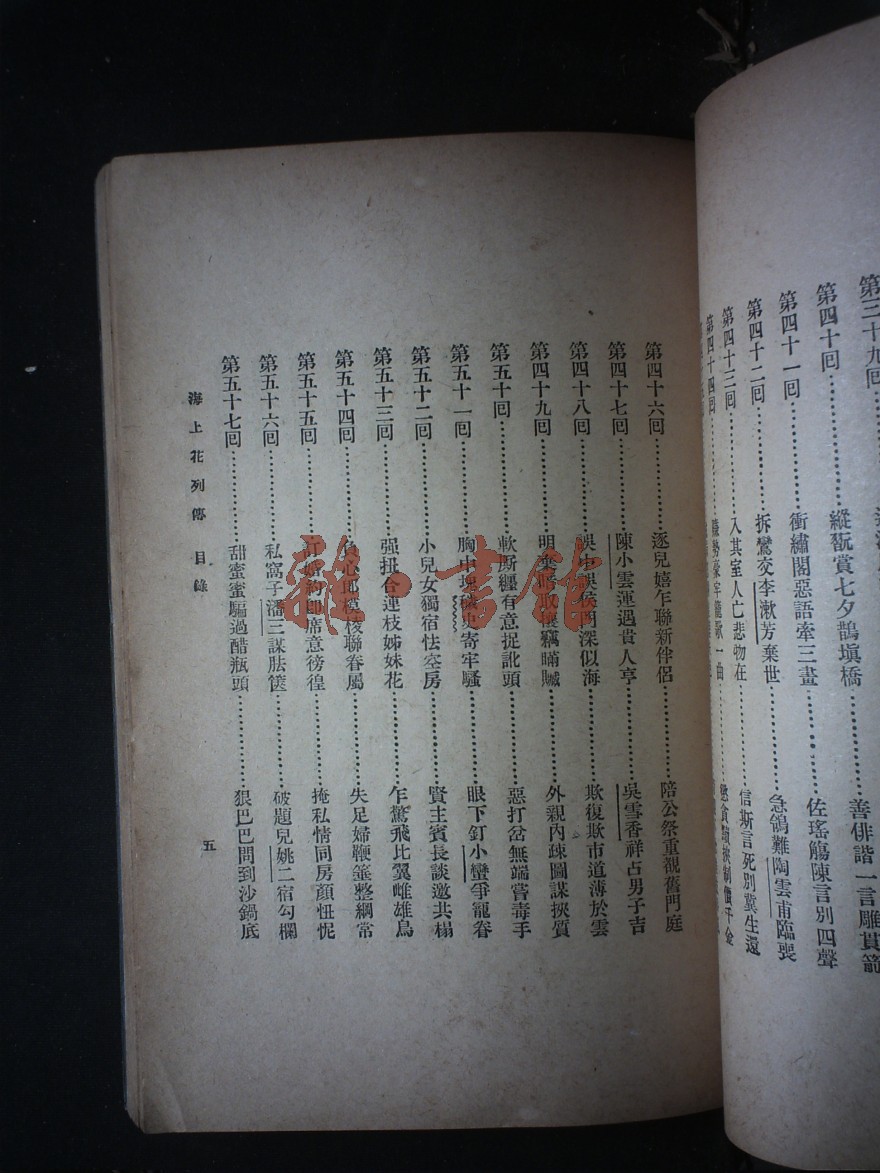 第三十九回
善俳諧一言雕貫箭
第四十回……縱翫賞七夕鵲塡橋……善俳諧一言雕貫箭
第四十一回……衝繡閣惡語牽三畫……佐瑤觴陳言別四聲
第四十二回……拆鸞交李漱芳棄世……急鴒難陶雲甫臨喪
第四十三回……入其室人亡悲物在……信斯言死別冀生還
第四十四回
第四十六回……逐兒嬉乍聯新伴侶……陪公祭重覩舊門庭
第四十七回……陳小雲運遇貴人亨……吳雪香祥占男子吉
第四十八回……誤中誤侯門深似海……欺復欺市道薄於雲
第四十九回……明棄暗取攘竊瞞贓……外親內疎圖謀挾質
第五十回……軟厮纏有意捉訛頭……惡打岔無端嘗毒手
第五十一回……胸中塊穢史寄牢騷……眼下釘小蠻爭寵眷
第五十二回……小兒女獨宿怯空房……賢主賓長談邀共榻
第五十三回……强扭合連枝姊妹花……乍驚飛比翼雌雄鳥
第五十四回……負心郎模棱聯眷屬……失足婦鞭箠整綱常
第五十五回……訂婚約卽席意徬徨……掩私情同房顏忸怩
第五十六回……私窩子潘三謀胠篋……破題兒姚二宿勾欄
第五十七回……甜蜜蜜騙過醋瓶頭……狠巴巴問到沙鍋底
海上花列傳 目錄
五
雜·書館